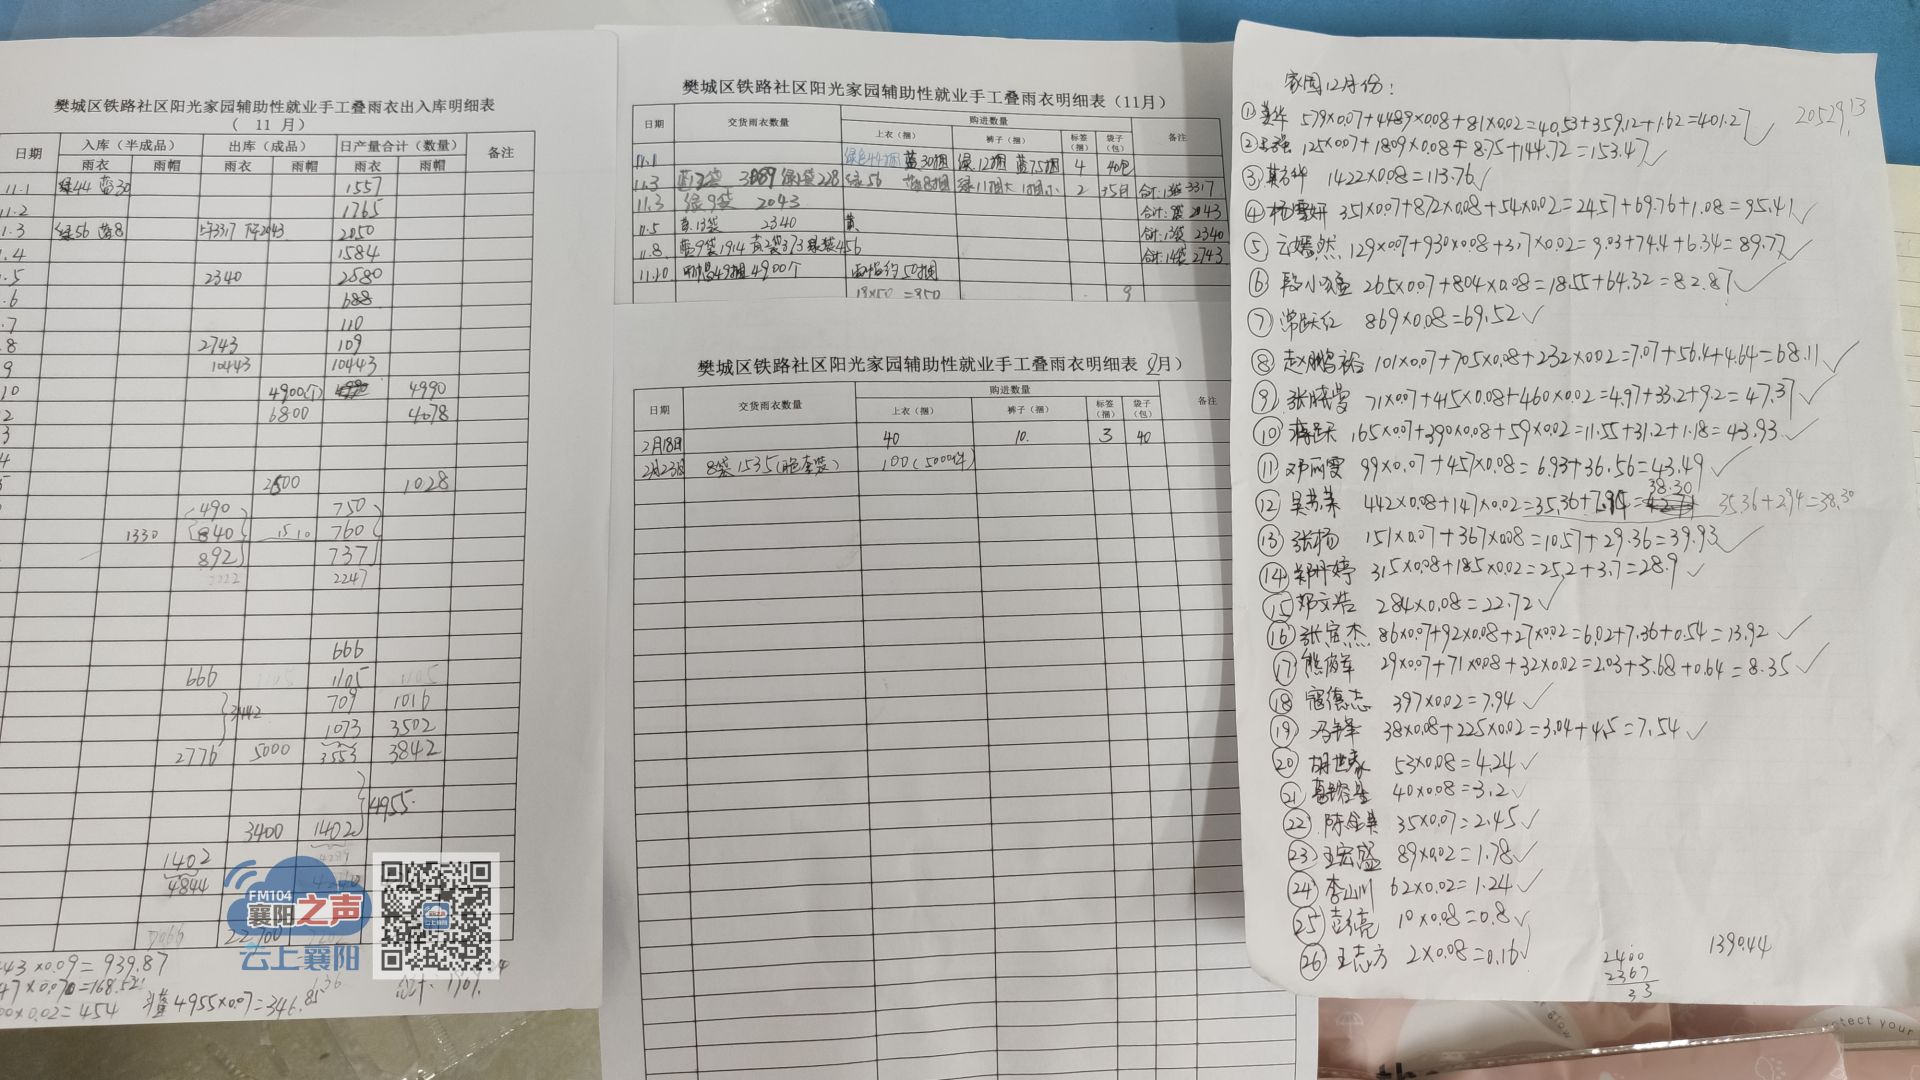 樊城区铁路社区阳光家园辅助性就业手工叠雨衣出入库明细表
（ 11 月）
日期 入库（半成品） 出库（成品） 日产量合计（数量） 备注
雨衣 雨帽 雨衣 雨帽 雨衣 雨帽
11.1 绿44 蓝30 1557
11.2 1765
1.3 绿56 蓝8 2050
1.4 1584
1.5 2340 2580
.6 688
.7 110
.8 2743 109
9 10443 10443
10 4900(个) 4990
2 6800 4078
3
4
5 2500 1028
490 750
1330 840 1510 760
892 737
2022 2247
666
666 1105 1105 1105
3442 709 1016
1073 3502
2776 5000 3553 3842
4955
3400 1402
1402
4844
7066 22700
443×0.09=939.87
47×0.07=168.52
00×0.02=454 4955×0.07=346.85
FM104
襄阳之声
云上襄阳
樊城区铁路社区阳光家园辅助性就业手工叠雨衣明细表（11月）
日期 交货雨衣数量 购进数量 备注
上衣（捆） 裤子（捆） 标签（捆） 袋子（包）
11.1 绿色44捆 蓝30捆 绿12捆 蓝75捆 4 40包
11.3 绿56 蓝8捆 2 合计: 3317
11.3 绿9袋 2043 合计: 9袋 2043
11.5 黄.13袋 2340 黄 合计:13袋 2340
11.8. 蓝9袋1914 黄2袋373 绿3袋456 合计:14袋 2743
11.10 雨帽49捆 4900个 雨帽约50捆
19×50 =950 9
樊城区铁路社区阳光家园辅助性就业手工叠雨衣明细表（2月）
日期 交货雨衣数量 购进数量 备注
上衣（捆） 裤子（捆） 标签（捆） 袋子（包）
2月18日 40 10. 3 40
2月23日 8袋 1535 100（5000件）
家园12月份:
20529.13
① 579×0.07+4489×0.08+81×0.02=40.53+359.12+1.62=401.27
② 125×0.07+1809×0.08=8.75+144.72=153.47
③ 1422×0.08=113.76
④ 杨雪妍 351×0.07+872×0.08+54×0.02=24.57+69.76+1.08=95.41
⑤ 云嫣然 129×0.07+930×0.08+317×0.02=9.03+74.4+6.34=89.77
⑥ 段小 265×0.07+804×0.08=18.55+64.32=82.87
⑦ 常跃红 869×0.08=69.52
⑧ 赵鹏 101×0.07+705×0.08+232×0.02=7.07+56.4+4.64=68.11
⑨ 张晓雪 71×0.07+415×0.08+460×0.02=4.97+33.2+9.2=47.37
⑩ 165×0.07+390×0.08+59×0.02=11.55+31.2+1.18=43.93
⑪ 邓丽雯 99×0.07+457×0.08=6.93+36.56=43.49
⑫ 442×0.08+147×0.02=35.36+ = 38.30 35.36+2.94=38.30
⑬ 张杨 151×0.07+367×0.08=10.57+29.36=39.93
⑭ 婷 315×0.08+185×0.02=25.2+3.7=28.9
⑮ 邓文浩 284×0.08=22.72
⑯ 张宜杰 86×0.07+92×0.08+27×0.02=6.02+7.36+0.54=13.92
⑰ 熊 29×0.07+71×0.08+32×0.02=2.03+5.68+0.64=8.35
⑱ 寇德志 397×0.02=7.94
⑲ 冯锋 38×0.08+225×0.02=3.04+4.5=7.54
⑳ 胡世 53×0.08=4.24
㉑ 40×0.08=3.2
㉒ 陈金 35×0.07=2.45
㉓ 王宏盛 89×0.02=1.78
㉔ 李山川 62×0.02=1.24
㉕ 彭亮 10×0.08=0.8
㉖ 王志方 2×0.08=0.16
2400
2367
33
1390.44
glow
protect your